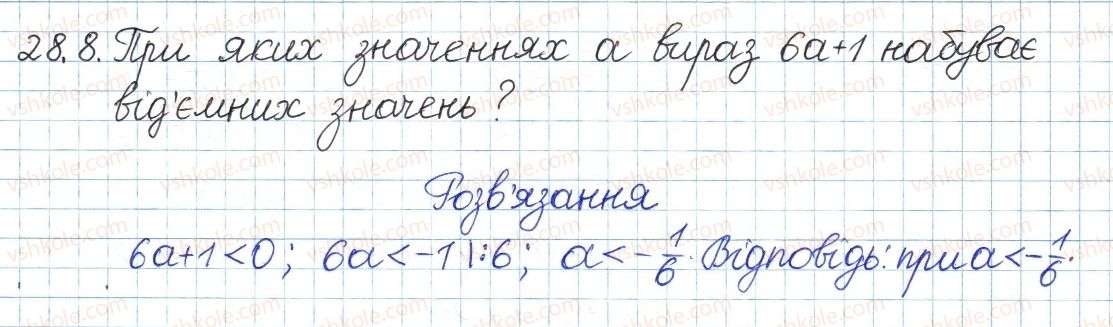 28.8. При яких значеннях a вираз 6a+1 набуває
від'ємних значень?
Розв'язання
6a+1<0; 6a<-1 |:6; a<-1/6. Відповідь: при a<-1/6.